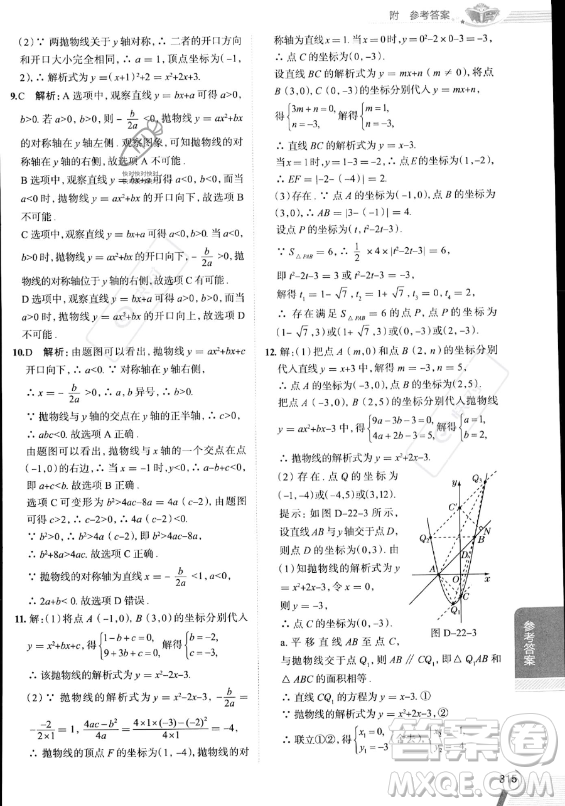 附 参考答案
(2)∵ 两抛物线关于 y 轴对称,∴ 二者的开口方向
和开口大小完全相同,∴ a=1,顶点坐标为(-1,
2),∴ 解析式为 y=(x+1)²+2.
9.C 解析:A 选项中,观察直线 y=bx+a 可得 a>0,
b>0.若 a>0,b>0,则 -b/2a<0,抛物线 y=ax²+bx
的对称轴在 y 轴左侧.观察图象,可知抛物线的对
称轴在 y 轴的右侧,故选项 A 不可能.
B 选项中,观察直线 y=bx+a 可得 a<0,b>0,而当
a<0 时,抛物线 y=ax²+bx 的开口向下,故选项 B
不可能.
C 选项中,观察直线 y=bx+a 可得 a<0,b>0,当 a<0,
b>0 时,抛物线 y=ax²+bx 的开口向下,-b/2a>0,抛
物线的对称轴位于 y 轴的右侧,故选项 C 有可能.
D 选项中,观察直线 y=bx+a 可得 a>0,b>0,当 a>0
时,抛物线 y=ax²+bx 的开口向上,故选项 D
不可能.
10.D 解析:由题图可以看出,抛物线 y=ax²+bx+c
开口向下,∴ a<0.∵ 对称轴在 y 轴左侧,
∴ x=-b/2a<0,∴
∵ 抛物线与 y 轴的交点在 y 轴的正半轴,∴ c>0,
∴ abc<0.故选项 A 正确.
由题图可以看出,抛物线与 x 轴的一个交点在点
(-1,0)的右边,∴ 当 x=-1 时,y=a-b+c<0,
即 a+c<b.故选项 B 正确.
选项 C 可变形为 b²>4ac-8a=4a(c-2),由题图可
得 c>2,∴ 4a(c-2)<0.
∵ b²>0,∴ b²>4ac-8a,
∴ b²+8a>4ac.故选项 C 正确.
∵ 抛物线的对称轴为直线 x=-b/2a
∴ 2a+b .故选项 D 错误.
11.解:(1)将点 A(-1,0),B(3,0)的坐标分别代入
y=x²+bx+c,得{1-b+c=0, 9+3b+c=0, 解得{b=-2, c=-3,
∴ 该抛物线的解析式为 y=x²-2x-3.
(2)∵ 抛物线的解析式为 y=x²-2x-3,∴ -b/2a=
-(-2)/(2×1)=1,(4ac-b²)/4a=(4×1×(-3)-(-2)²)/(4×1)=-4,
∴ 抛物线的顶点 F 的坐标为(1,-4),抛物线的对
称轴为直线 x=1.∵ 当 x=0 时,y=-3,
∴ 点 C 的坐标为(0,-3).
设直线 BC 的解析式为 y=mx+n(m≠0),将点
B(3,0),C(0,-3)的坐标分别代入 y=mx+n,
得{3m+n=0, n=-3, 解得{m=1, n=-3,
∴ 直线 BC 的解析式为 y=x-3.
当 x=1 时,y=1-3=-2,∴ 点 E 的坐标为(1,-2),
∴ EF=|-2-(-4)|=2.
(3)存在.∵ 点 A 的坐标为(-1,0),点 B 的坐标为
(3,0),∴ AB=|3-(-1)|=4.
设点 P 的坐标为(t,t²-2t-3).
∵ S△PAB=6,∴ 1/2×4×|t²-2t-3|=6,
即 t²-2t-3=±3,
解得 t₁=1-√7,t₂=1+√7,t₃=0,t₄=2,
∴ 存在满足 S△PAB=6 的点 P,点 P 的坐标为
(1-√7,3)或(1+√7,3)或(0,-3)或(2,-3).
12.解:(1)把点 A(m,0)和点 B(2,n)的坐标分别
代入直线 y=x+3 中,解得 m=-3,n=5,
∴ 点 A(-3,0),点 B(2,5).
把点 A(-3,0),B(2,5)的坐标分别代入抛物线
y=ax²+bx-3,得{9a-3b-3=0, 4a+2b-3=5, 解得{a=1, b=2,
∴ 抛物线的解析式为 y=x²+2x-3.
(2)存在.点 Q 的坐标为
(-1,-4)或(-4,5)或(3,12).
提示:如图 D-22-3 所示,
设直线 AB 与 y 轴交于点 D,
则点 D 的坐标为(0,3).由
(1)知抛物线的解析式为
y=x²+2x-3,令 x=0,
则 y=-3,
∴ 点 C 的坐标为(0,-3).
图 D-22-3
a.平移直线 AB 至过点 C,
与抛物线交于点 Q₁,则 AB∥CQ₁,即△ABQ₁ 和
△ABC 的面积相等.
∴ 直线 CQ₁ 的解析式为 y=x-3.①
∵ 抛物线的解析式为 y=x²+2x-3,②
∴ 联立①②,得{x₁=0, y₁=-3,
参考答案
315